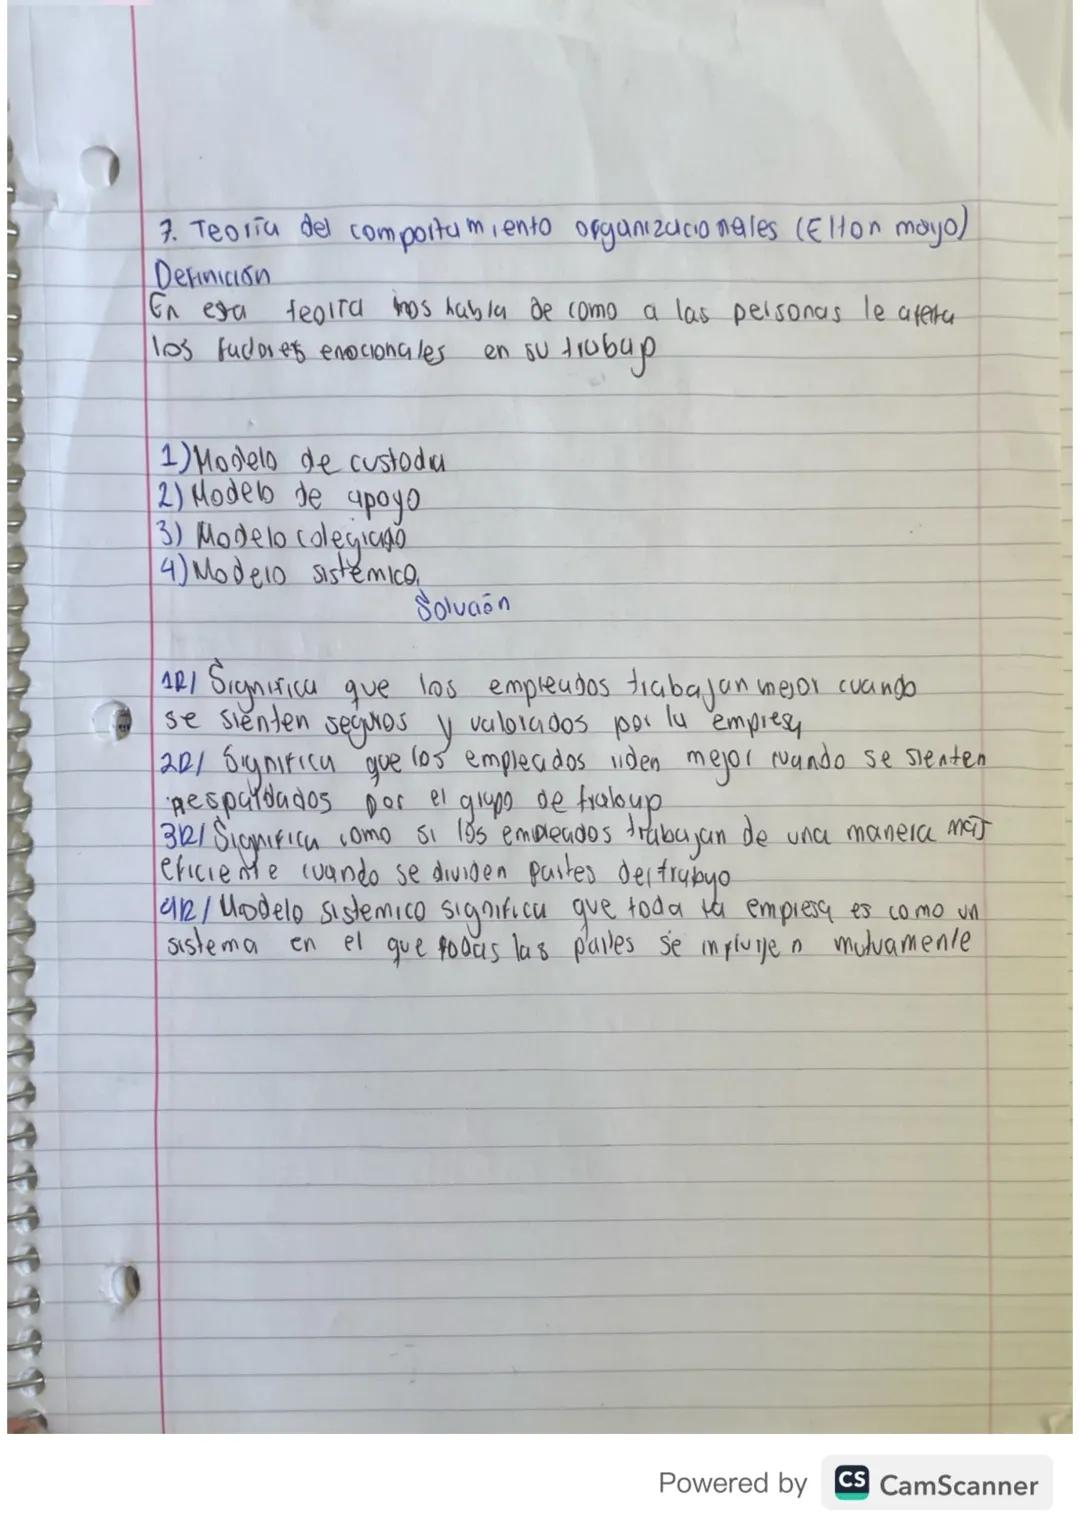 7. Teoría del comportamiento organizacionales (Elton mayo)
Definición
En esta teoira nos habla de como a las personas le afecta
los factores emocionales en su trabajo
1) Modelo de custodia
2) Modelo de apoyo
3) Modelo colegiado
4) Modelo sistemico.
Solución
1R/ Significa que los empleados trabajan mejor cuando
se sienten seguros y valorados por la empresa
2R/ Significa que los empleados rinden mejor cuando se sienten
respaldados por el grupo de trabajo
3R/ Significa como si los empleados trabajan de una manera mas
eficiente cuando se dividen partes del trabajo
4R/ Modelo sistemico significa que toda la empresa es como un
sistema en el que todas las partes se influyen mutuamente
Powered by CS CamScanner